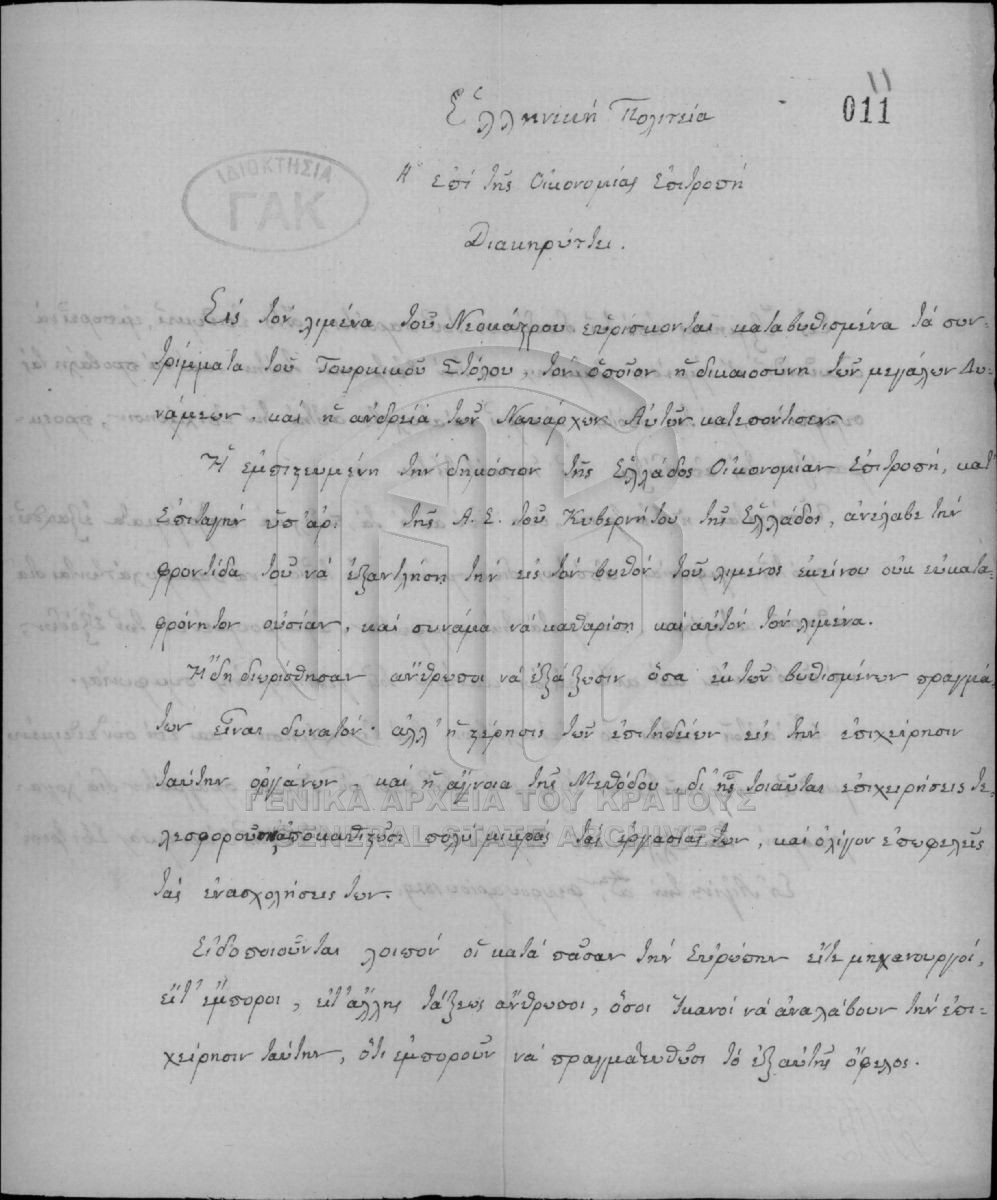 011
11
Ἑλληνική Πολιτεία
ΙΔΙΟΚΤΗΣΙΑ
ΓΑΚ
Ἡ ἐπί τῆς Οἰκονομίας ἐπιτροπή
Διακηρύττει.
Εἰς τόν λιμένα τοῦ Νεοκάστρου εὑρίσκονται καταβυθισμένα τά συν-
τρίμματα τοῦ Τουρκικοῦ Στόλου, τόν ὁποῖον ἡ δικαιοσύνη τῶν μεγάλων Δυ-
νάμεων, καί ἡ ἀνδρεία τῶν Ναυάρχων Αὐτῶν κατεπόντισεν.
Ἡ ἐμπιστευμένη τήν δημόσιον τῆς Ἑλλάδος Οἰκονομίαν ἐπιτροπή, κατ'
ἐπιταγήν ὑπ' ἀρ. τῆς Α. Ε. τοῦ Κυβερνήτου τῆς Ἑλλάδος, ἀνέλαβε τήν
φροντίδα τοῦ νά ἐξαντλήσῃ τήν εἰς τόν βυθόν τοῦ λιμένος ἐκείνου οὐκ εὐκατα-
φρόνητον οὐσίαν, καί συνάμα νά καθαρίσῃ καί αὐτόν τόν λιμένα.
Ἤδη διωρίσθησαν ἄνθρωποι νά ἐξάξωσιν ὅσα ἐκ τῶν βυθισμένων πραγμά-
των εἶναι δυνατόν· ἀλλ' ἡ στέρησις τῶν ἐπιτηδείων εἰς τήν ἐπιχείρησιν
ταύτην ὀργάνων, καί ἡ ἄγνοια τῆς Μεθόδου, δι' ἧς τοιαῦται ἐπιχειρήσεις τε-
λεσφοροῦσιν, ἀποκαθιστῶσι πολύ μικράς τάς ἐργασίας των, καί ὀλίγον ἐπωφελεῖς
τάς ἐνασχολήσεις των.
Εἰδοποιοῦνται λοιπόν οἱ κατά πᾶσαν τήν Εὐρώπην εἴτε μηχανουργοί,
εἴτ' ἔμποροι, εἴτ' ἄλλης τάξεως ἄνθρωποι, ὅσοι ἱκανοί νά ἀναλάβουν τήν ἐπι-
χείρησιν ταύτην, ὅτι ἐμποροῦν νά πραγματευθῶσι τό ἐξ αὐτῆς ὄφελος.
ΓΕΝΙΚΑ ΑΡΧΕΙΑ ΤΟΥ ΚΡΑΤΟΥΣ
GENERAL STATE ARCHIVES